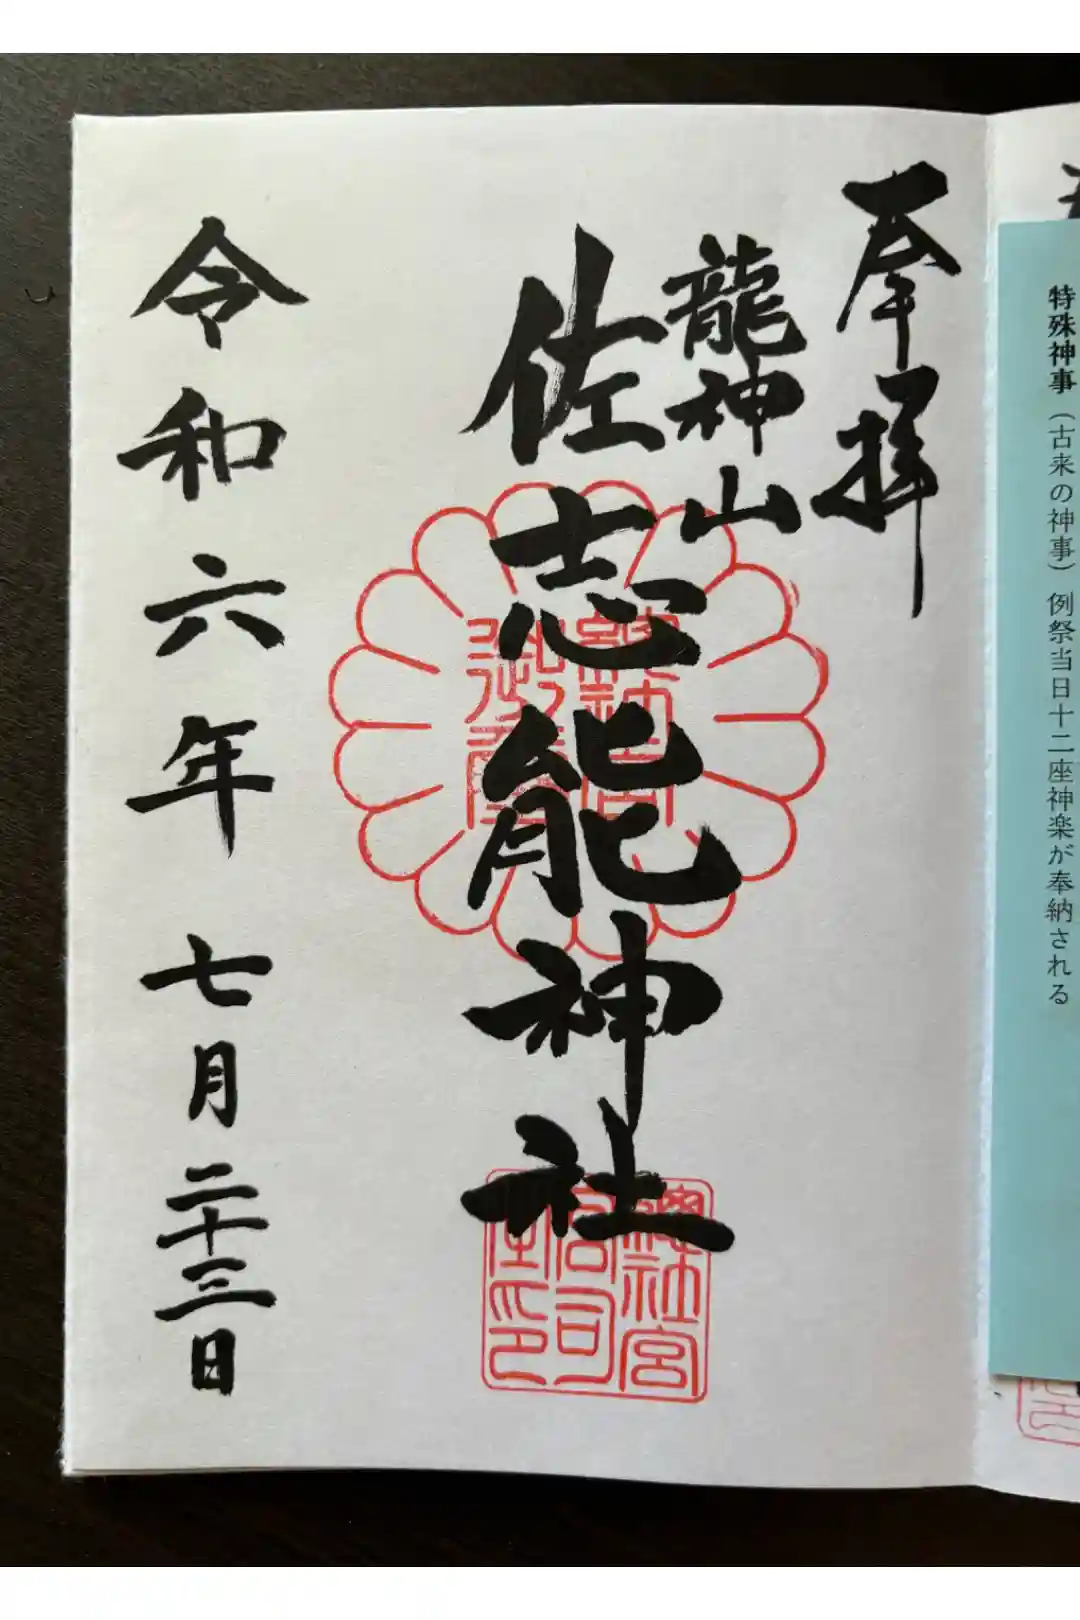 特殊神事（古来の神事）例祭当日十二座神楽が奉納される
奉拝
龍神山
佐志能神社
令和六年七月二十三日
總社宮
宮司
之印